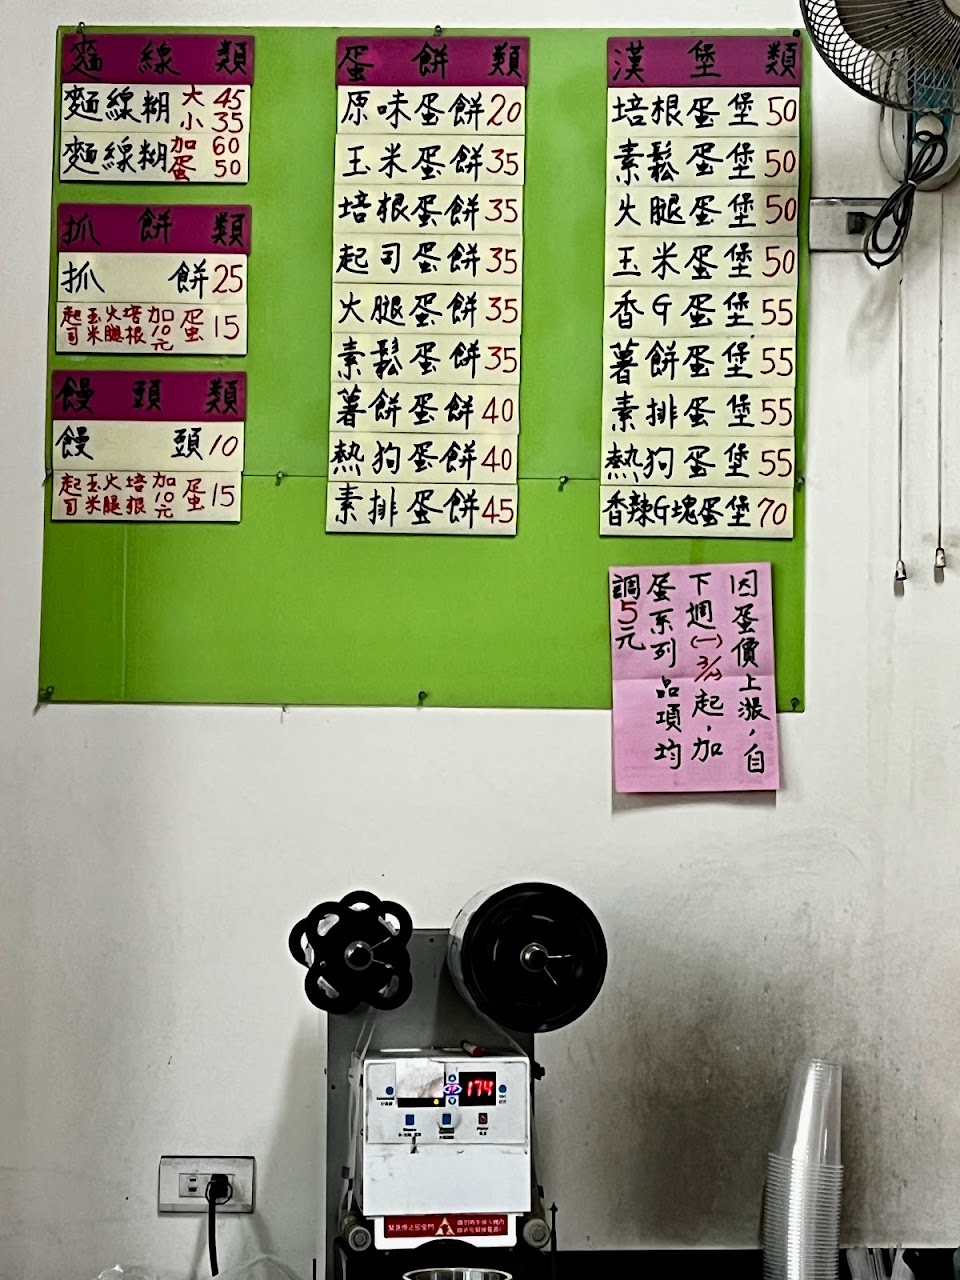 麵線類
麵線糊 大 45
小 35
麵線糊 加蛋 60
50
抓餅類
抓餅 25
起司 玉米 火腿 培根 加10元 蛋 15
饅頭類
饅頭 10
起司 玉米 火腿 培根 加10元 蛋 15
蛋餅類
原味蛋餅 20
玉米蛋餅 35
培根蛋餅 35
起司蛋餅 35
火腿蛋餅 35
素鬆蛋餅 35
薯餅蛋餅 40
熱狗蛋餅 40
素排蛋餅 45
漢堡類
培根蛋堡 50
素鬆蛋堡 50
火腿蛋堡 50
玉米蛋堡 50
香G蛋堡 55
薯餅蛋堡 55
素排蛋堡 55
熱狗蛋堡 55
香辣G塊蛋堡 70
因蛋價上漲，自
下週(一)3/13起，加
蛋系列品項均
調5元
174